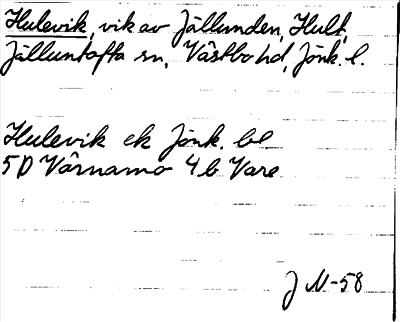 Hulevik, vik av Jällunden, Hult,
Jälluntofta sn, Västbo hd, Jönk. l.
Hulevik ek Jönk. bl
5D Värnamo 4 b Vare
J N-58